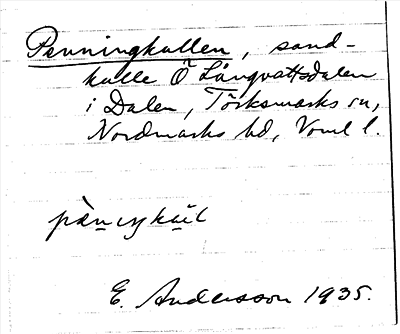 Penningkullen, sand-
kulle Ö Långvattsdalen
i Dalen, Törksmarks sn,
Nordmarks hd, Vrml l.
E. Andersson 1935.